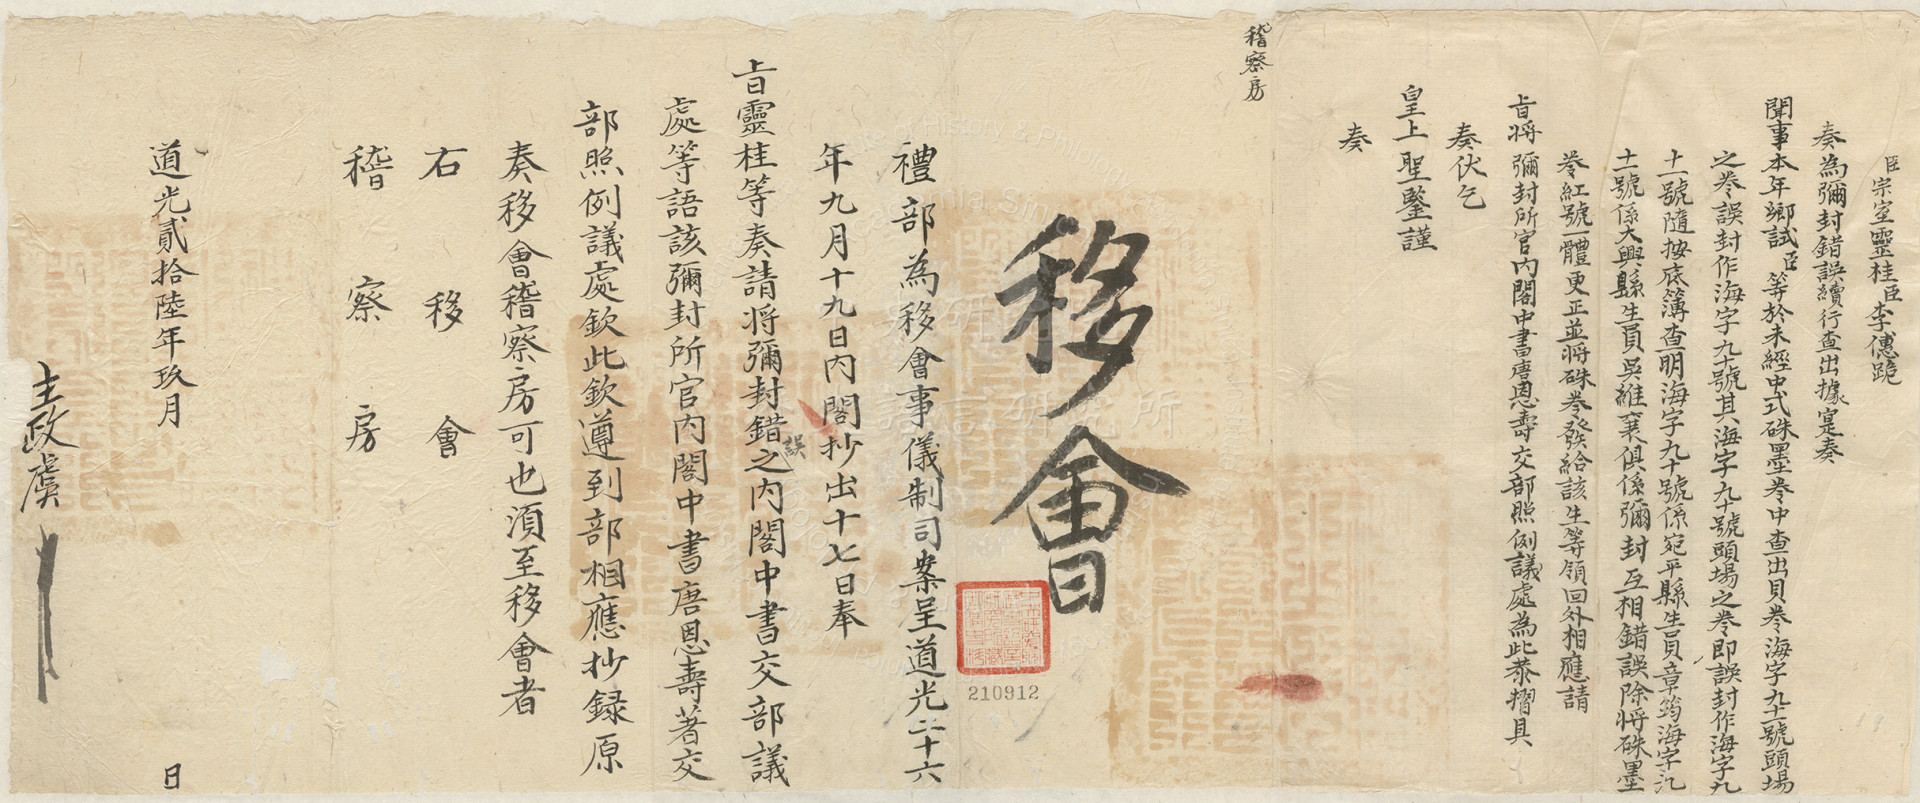 臣宗室靈桂臣李僡跪
奏為彌封錯誤續行查出據實奏
聞事本年鄉試臣等於未經中式硃墨卷中查出貝卷海字九十一號頭場
之卷誤封作海字九十號其海字九十號頭場之卷即誤封作海字九
十一號隨按底簿查明海字九十號係宛平縣生員章筠海字九
十一號係大興縣生員吳維襄俱係彌封互相錯誤除將硃墨
卷紅號一體更正並將硃卷發給該生等領回外相應請
旨將彌封所官內閣中書唐恩壽交部照例議處為此恭摺具
奏伏乞
皇上聖鑒謹
奏
稽察房
移會
禮部為移會事儀制司案呈道光二十六
年九月十九日內閣抄出十七日奉
旨靈桂等奏請將彌封錯誤之內閣中書交部議
處等語該彌封所官內閣中書唐恩壽著交
部照例議處欽此欽遵到部相應抄錄原
奏移會稽察房可也須至移會者
右移會
稽察房
道光貳拾陸年玖月
日
主政虞
210912